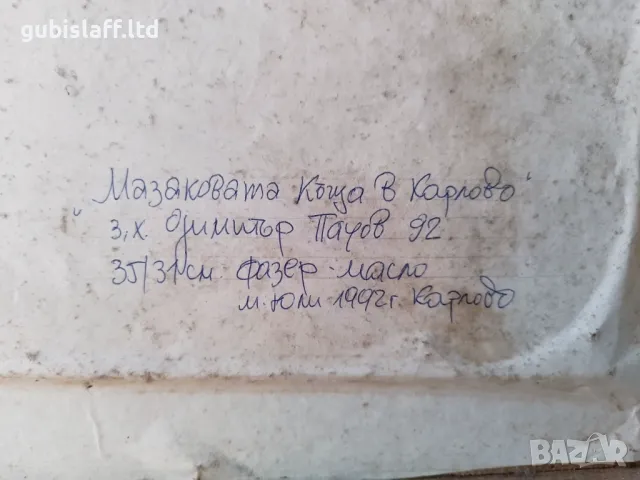 gubislaff.ltd
"Мазаковата Къща в Карлово"
з,х. Димитър Паунов 92.
35/31 см. фазер - масло
м. Юли 1992 г. Карлово
BAZAR